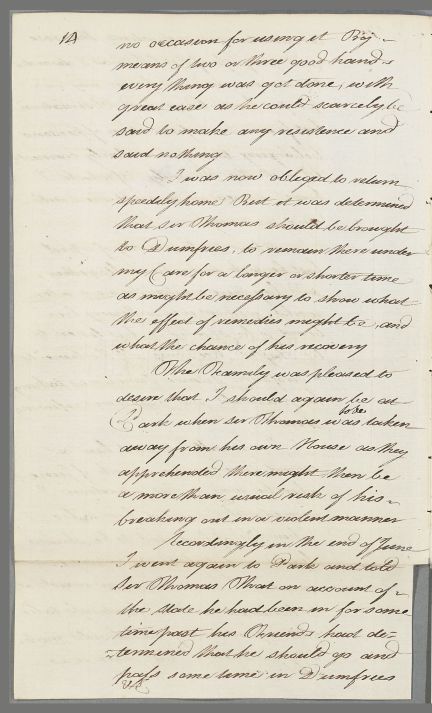 14
no occasion for using it By
means of two or three good hands
every thing was got done, with
great ease as he could scarcely be
said to make any resistence and
said nothing
I was now obleged to return
speedily home But it was determined
that Sir Thomas should be brought
to Dumfries, to remain there under
my Care for a longer or shorter time
as might be necessary to show what
the effect of remedies might be, and
what the chance of his recovery
The Family was pleased to
desire that I should again be at
Park when Sir Thomas was to be taken
away from his own House as they
apprehended there might then be
a more than usual risk of his
breaking out in a violent manner
Accordingly in the end of June
I went again to Park and told
Sir Thomas That on account of
the state he had been in for some
time past his Friends had de=
=termined that he should go and
pass some time in Dumfries